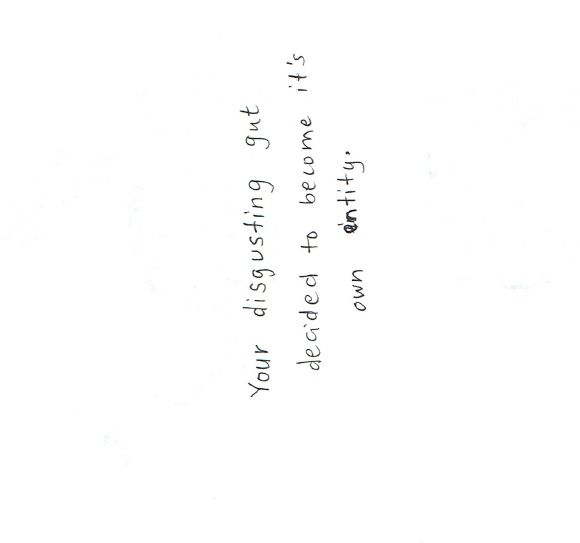 Your disgusting gut
decided to become it's
own entity.